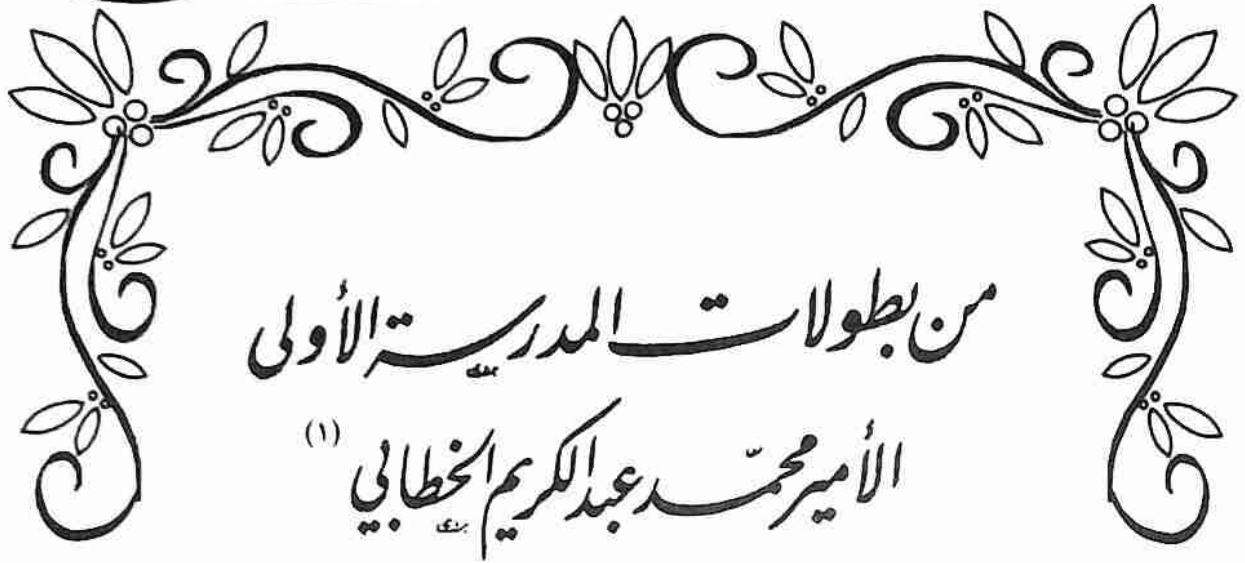 من بطولات المدرسة الأولى
الأمير محمّد عبد الكريم الخطابي (١)